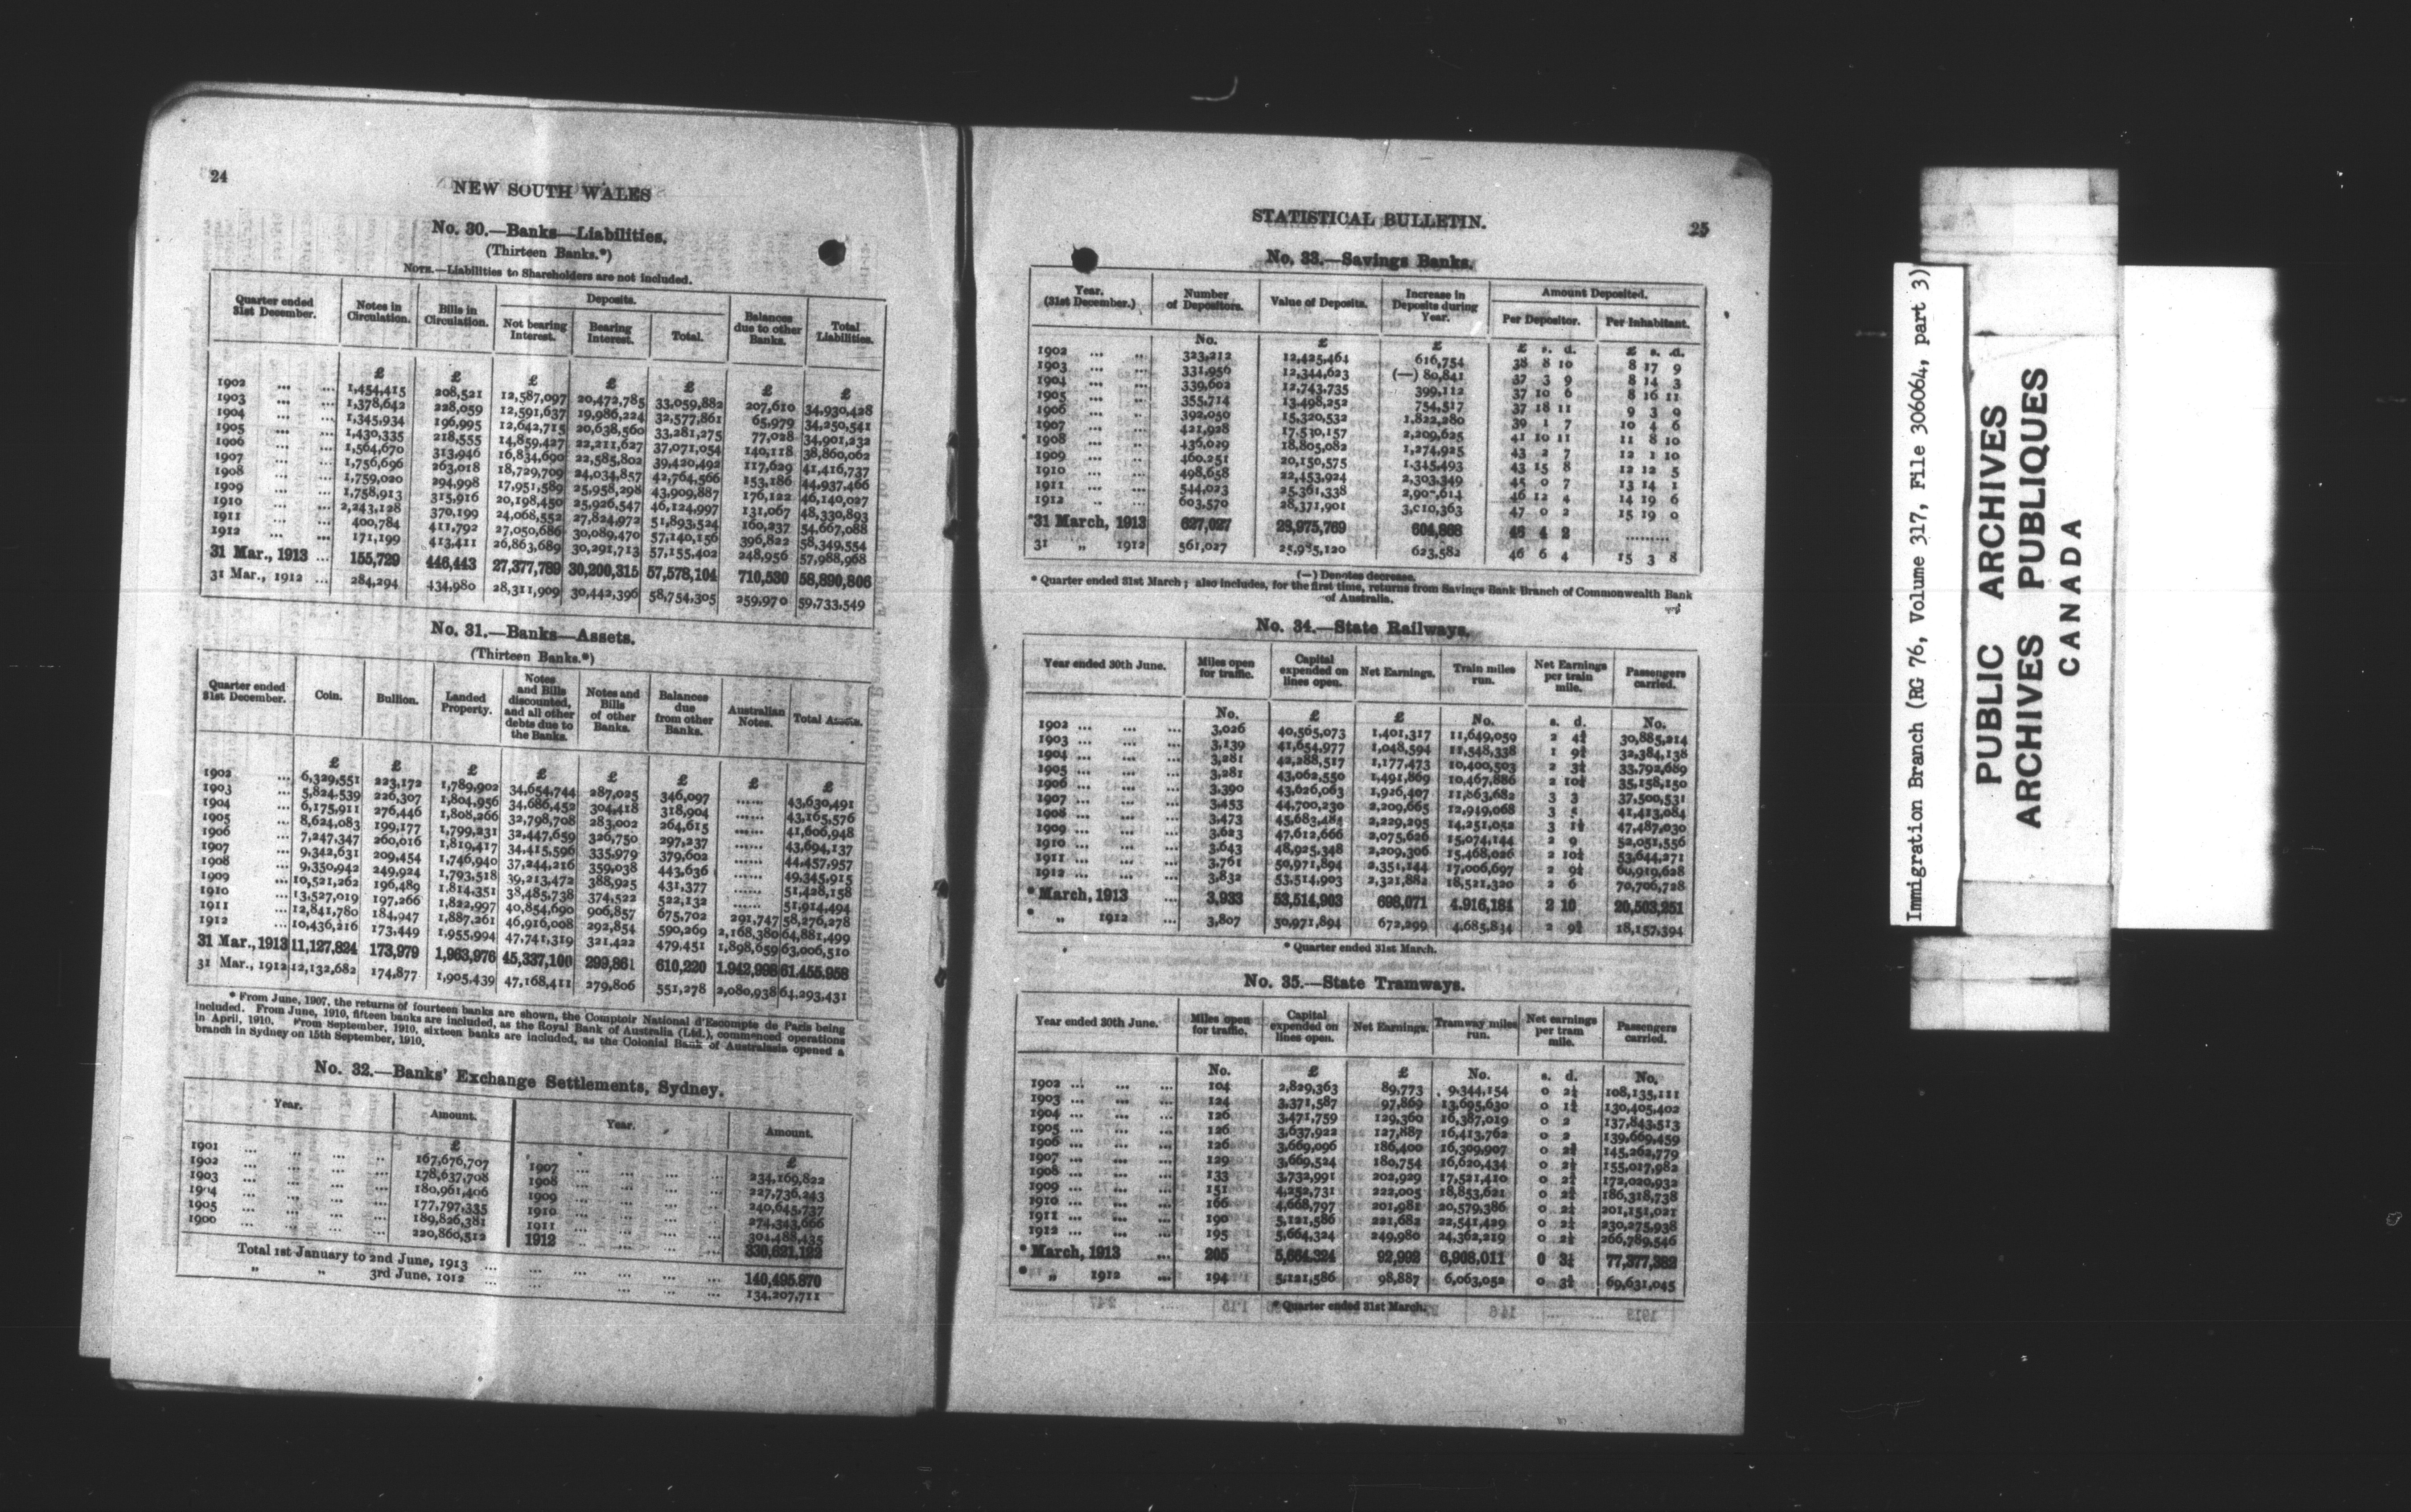 24
NEW SOUTH WALES
No. 30.—Banks—Liabilities.
(Thirteen Banks.*)
NOTE.—Liabilities to Shareholders are not included.
Quarter ended 31st December. Notes in Circulation. Bills in Circulation. Deposits. Not bearing Interest. Bearing Interest. Total. Balances due to other Banks. Total Liabilities.
£ £ £ £ £ £ £
1902 ... ... 1,454,415 208,521 12,587,097 20,472,785 33,059,882 207,610 34,930,428
1903 ... ... 1,378,642 228,059 12,591,637 19,986,224 32,577,861 65,979 34,250,541
1904 ... ... 1,345,934 196,995 12,642,715 20,638,560 33,281,275 77,028 34,901,232
1905 ... ... 1,430,335 218,555 14,859,427 22,211,627 37,071,054 140,118 38,860,062
1906 ... ... 1,564,670 313,946 16,834,690 22,585,802 39,420,492 117,629 41,416,737
1907 ... ... 1,756,696 263,018 18,729,709 24,034,857 42,764,566 153,186 44,937,466
1908 ... ... 1,759,020 294,998 17,951,589 25,958,298 43,909,887 176,122 46,140,027
1909 ... ... 1,758,913 315,916 20,198,450 25,926,547 46,124,997 131,067 48,330,893
1910 ... ... 2,243,128 370,199 24,068,552 27,824,972 51,893,524 160,237 54,667,088
1911 ... ... 400,784 411,792 27,050,686 30,089,470 57,140,156 396,822 58,349,554
1912 ... ... 171,199 413,411 26,863,689 30,291,713 57,155,402 248,956 57,988,968
31 Mar., 1913 ... 155,729 446,443 27,377,789 30,200,315 57,578,104 710,530 58,890,806
31 Mar., 1912 ... 284,294 434,980 28,311,909 30,442,396 58,754,305 259,970 59,733,549
No. 31.—Banks—Assets.
(Thirteen Banks.*)
Quarter ended 31st December. Coin. Bullion. Landed Property. Notes and Bills discounted, and all other debts due to the Banks. Notes and Bills of other Banks. Balances due from other Banks. Australian Notes. Total Assets.
£ £ £ £ £ £ £ £
1902 ... 6,329,551 223,172 1,789,902 34,654,744 287,025 346,097 ...... 43,630,491
1903 ... 5,824,539 226,307 1,804,956 34,686,452 304,418 318,904 ...... 43,165,576
1904 ... 6,175,911 276,446 1,808,266 32,798,708 283,002 264,615 ...... 41,606,948
1905 ... 8,624,083 199,177 1,799,231 32,447,659 326,750 297,237 ...... 43,694,137
1906 ... 7,247,347 260,016 1,819,417 34,415,596 335,979 379,602 ...... 44,457,957
1907 ... 9,342,631 209,454 1,746,940 37,244,216 359,038 443,636 ...... 49,345,915
1908 ... 9,350,942 249,924 1,793,518 39,213,472 388,925 431,377 ...... 51,428,158
1909 ... 10,521,262 196,489 1,814,351 38,485,738 374,522 522,132 ...... 51,914,494
1910 ... 13,527,019 197,266 1,822,997 40,854,690 906,857 675,702 291,747 58,276,278
1911 ... 12,841,780 184,947 1,887,261 46,916,008 292,854 590,269 2,168,380 64,881,499
1912 ... 10,436,216 173,449 1,955,994 47,741,319 321,422 479,451 1,898,659 63,006,510
31 Mar., 1913 11,127,824 173,979 1,963,976 45,337,100 299,861 610,220 1,942,998 61,455,958
31 Mar., 1912 12,132,682 174,877 1,905,439 47,168,411 279,806 551,278 2,080,938 64,293,431
* From June, 1907, the returns of fourteen banks are shown, the Comptoir National d'Escompte de Paris being
included. From June, 1910, fifteen banks are included, as the Royal Bank of Australia (Ltd.), commenced operations
in April, 1910. From September, 1910, sixteen banks are included, as the Colonial Bank of Australasia opened a
branch in Sydney on 15th September, 1910.
No. 32.—Banks' Exchange Settlements, Sydney.
Year. Amount. Year. Amount.
£ £
1901 ... ... ... 167,676,707 1907 ... ... ... 234,169,822
1902 ... ... ... 178,637,708 1908 ... ... ... 227,736,243
1903 ... ... ... 180,961,406 1909 ... ... ... 240,645,737
1904 ... ... ... 177,797,335 1910 ... ... ... 274,343,666
1905 ... ... ... 189,826,381 1911 ... ... ... 304,488,435
1906 ... ... ... 220,860,512 1912 ... ... ... 330,621,122
Total 1st January to 2nd June, 1913 ... ... ... ... ... 140,495,870
" " 3rd June, 1912 ... ... ... ... ... 134,207,711
STATISTICAL BULLETIN.
25
No. 33.—Savings Banks.
Year. (31st December.) Number of Depositors. Value of Deposits. Increase in Deposits during Year. Amount Deposited. Per Depositor. Per Inhabitant.
No. £ £ £ s. d. £ s. d.
1902 ... ... 323,212 12,425,464 616,754 38 8 10 8 17 9
1903 ... ... 331,956 12,344,623 (—) 80,841 37 3 9 8 14 3
1904 ... ... 339,602 12,743,735 399,112 37 10 6 8 16 11
1905 ... ... 355,714 13,498,252 754,517 37 18 11 9 3 9
1906 ... ... 392,050 15,320,532 1,822,280 39 1 7 10 4 6
1907 ... ... 421,928 17,530,157 2,209,625 41 10 11 11 8 10
1908 ... ... 436,029 18,805,082 1,274,925 43 2 7 12 1 10
1909 ... ... 460,251 20,150,575 1,345,493 43 15 8 12 12 5
1910 ... ... 498,658 22,453,924 2,303,349 45 0 7 13 14 1
1911 ... ... 544,023 25,361,338 2,907,614 46 12 4 14 19 6
1912 ... ... 603,570 28,371,901 3,010,363 47 0 2 15 19 0
*31 March, 1913 627,027 28,975,769 604,868 46 4 2 .........
31 " 1912 561,027 25,985,120 623,582 46 6 4 15 3 8
(—) Denotes decrease.
* Quarter ended 31st March; also includes, for the first time, returns from Savings Bank Branch of Commonwealth Bank
of Australia.
No. 34.—State Railways.
Year ended 30th June. Miles open for traffic. Capital expended on lines open. Net Earnings. Train miles run. Net Earnings per train mile. Passengers carried.
No. £ £ No. s. d. No.
1902 ... ... ... 3,026 40,565,073 1,401,317 11,649,059 2 4¾ 30,885,214
1903 ... ... ... 3,139 41,654,977 1,048,594 11,548,338 1 9¾ 32,384,138
1904 ... ... ... 3,281 42,288,517 1,177,473 10,400,503 2 3¼ 33,792,689
1905 ... ... ... 3,281 43,062,550 1,491,869 10,467,886 2 10¼ 35,158,150
1906 ... ... ... 3,390 43,626,063 1,926,407 11,863,682 3 3 37,500,531
1907 ... ... ... 3,453 44,700,230 2,209,665 12,949,068 3 5 41,413,084
1908 ... ... ... 3,473 45,683,484 2,229,295 14,251,052 3 1½ 47,487,030
1909 ... ... ... 3,623 47,612,666 2,075,626 15,074,144 2 9 52,051,556
1910 ... ... ... 3,643 48,925,348 2,209,306 15,468,026 2 10¼ 53,644,271
1911 ... ... ... 3,761 50,971,894 2,351,144 17,006,697 2 9¼ 60,919,628
1912 ... ... ... 3,832 53,514,903 2,321,882 18,521,320 2 6 70,706,728
* March, 1913 ... 3,933 53,514,903 698,071 4,916,184 2 10 20,503,251
* " 1912 ... 3,807 50,971,894 672,299 4,685,834 2 9½ 18,157,394
* Quarter ended 31st March.
No. 35.—State Tramways.
Year ended 30th June. Miles open for traffic. Capital expended on lines open. Net Earnings. Tramway miles run. Net earnings per tram mile. Passengers carried.
No. £ £ No. s. d. No.
1902 ... ... ... 104 2,829,363 89,773 9,344,154 0 2¼ 108,135,111
1903 ... ... ... 124 3,371,587 97,869 13,695,630 0 1¾ 130,405,402
1904 ... ... ... 126 3,471,759 129,360 16,387,019 0 2 137,843,513
1905 ... ... ... 126 3,637,922 127,887 16,413,762 0 2 139,669,459
1906 ... ... ... 126 3,669,096 186,400 16,309,907 0 2¾ 145,262,779
1907 ... ... ... 129 3,669,524 180,754 16,620,434 0 2½ 155,017,982
1908 ... ... ... 133 3,732,991 202,929 17,521,410 0 2¾ 172,020,932
1909 ... ... ... 151 4,252,731 222,005 18,853,621 0 2¾ 186,318,738
1910 ... ... ... 166 4,668,797 201,981 20,579,386 0 2¼ 201,151,021
1911 ... ... ... 190 5,121,586 221,682 22,541,429 0 2¼ 230,275,938
1912 ... ... ... 195 5,664,324 249,980 24,362,219 0 2½ 266,789,546
* March, 1913 ... 205 5,664,324 92,992 6,908,011 0 3¼ 77,377,382
* " 1912 ... 194 5,121,586 98,887 6,063,052 0 3¾ 69,631,045
* Quarter ended 31st March.
Immigration Branch (RG 76, Volume 317, File 306064, part 3)
PUBLIC ARCHIVES
ARCHIVES PUBLIQUES
CANADA